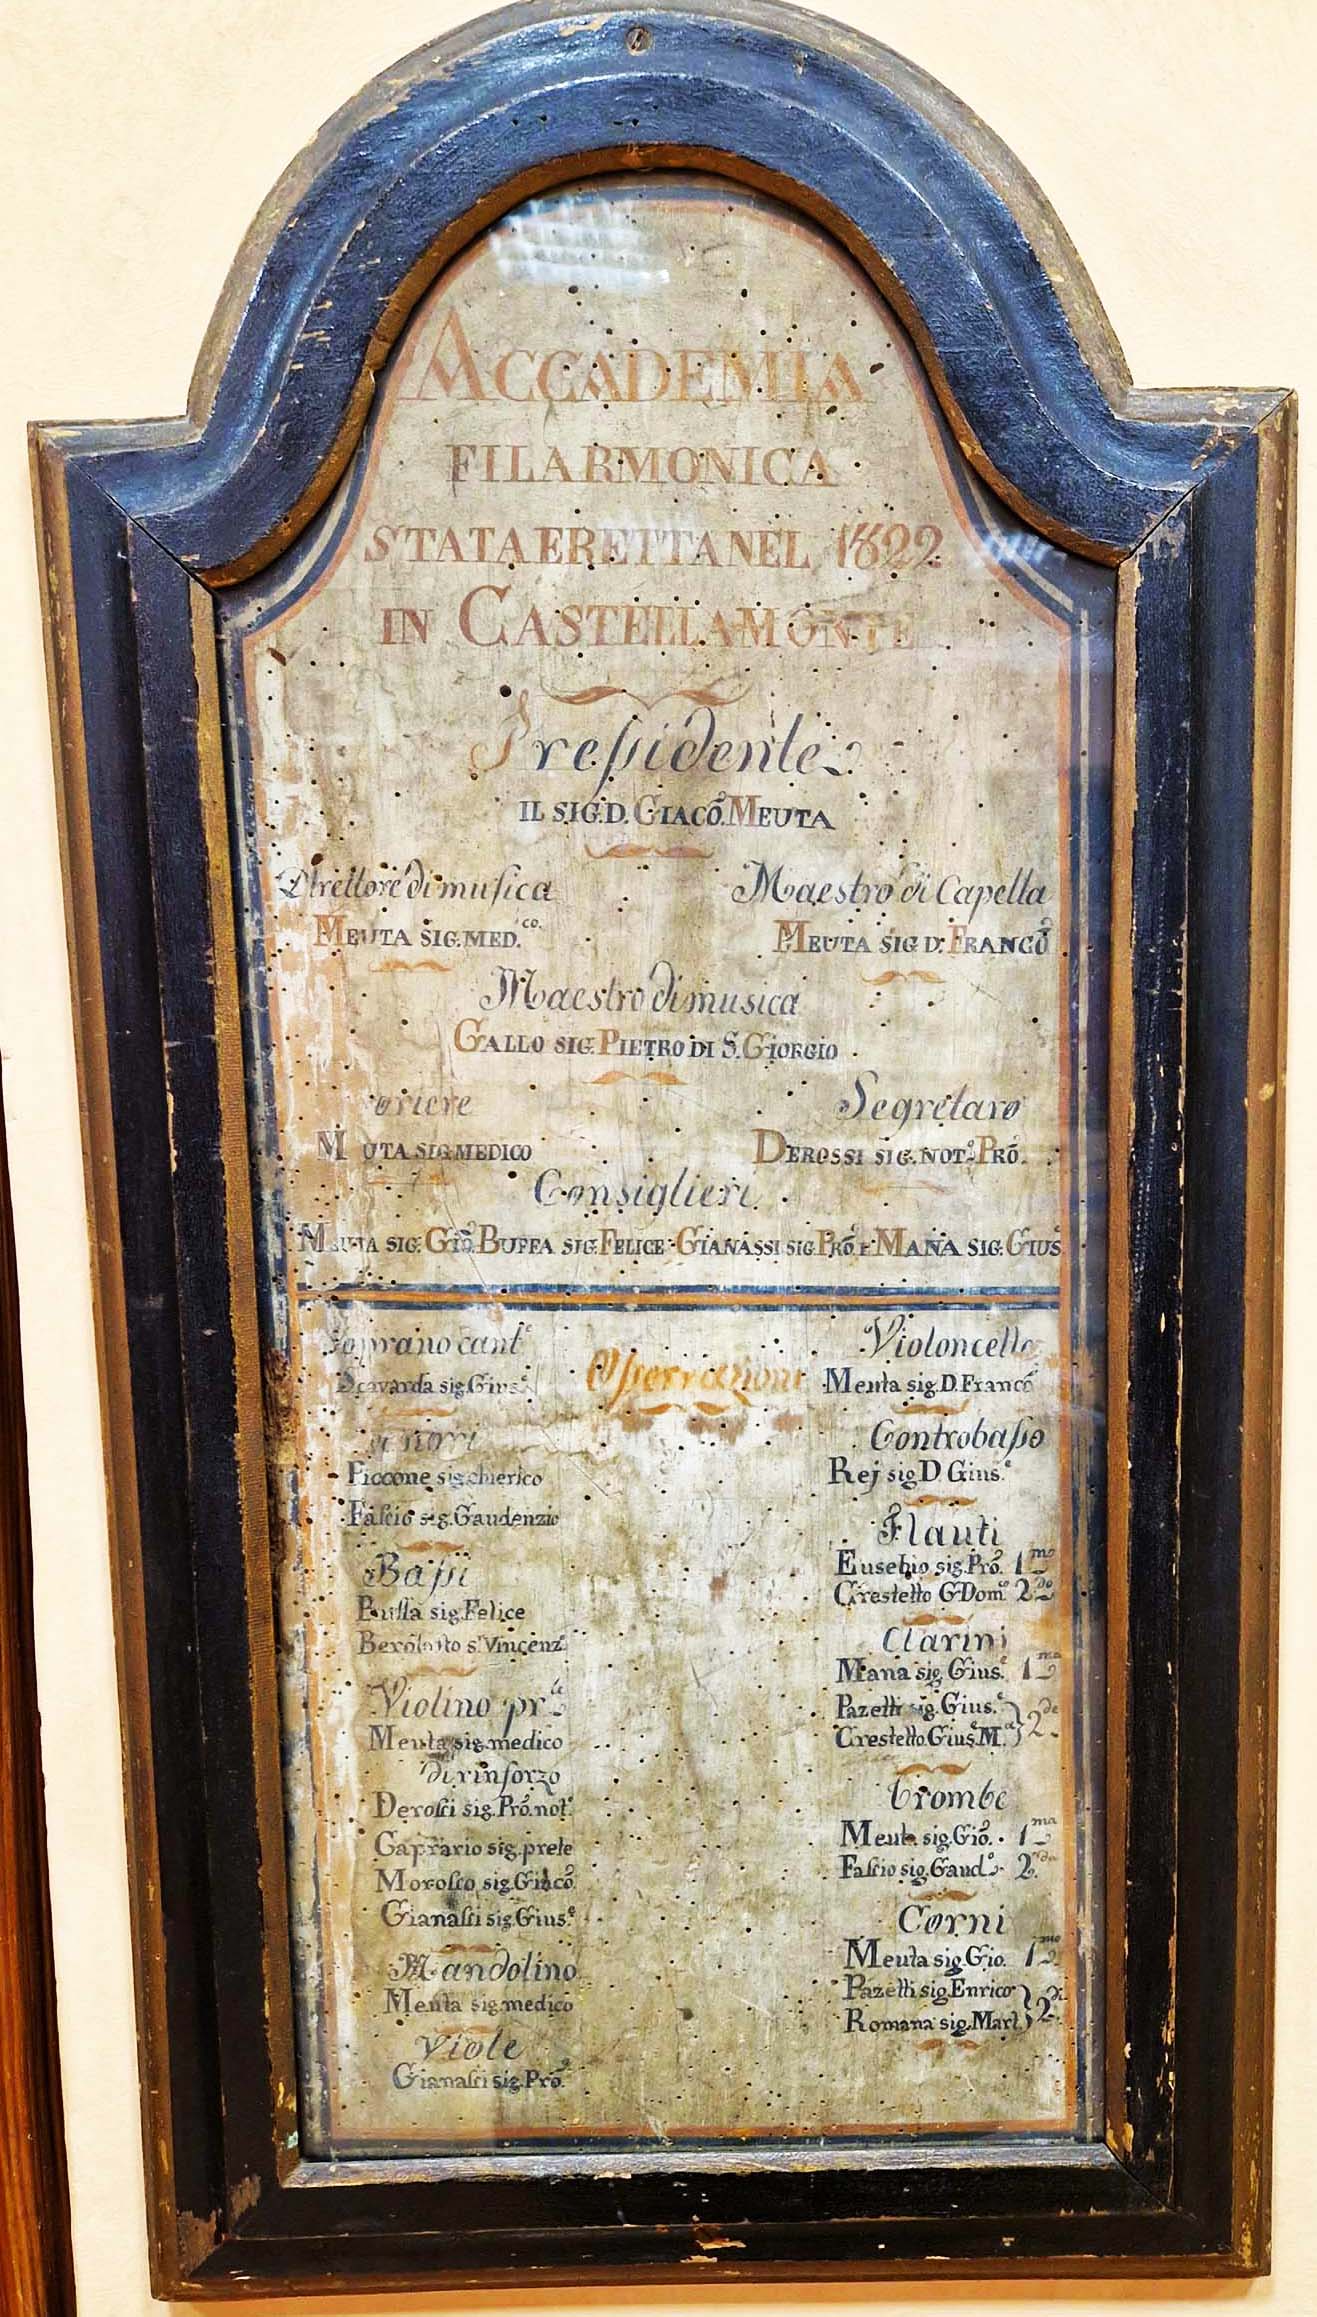 ACCADEMIA
FILARMONICA
STATA ERETTA NEL 1822
IN CASTELLAMONTE
Preſidente
IL SIG. D. GIACO. MEUTA
Direttore di muſica
MEUTA SIG. MED.co.
Maestro di Capella
MEUTA SIG D. FRANCO
Maestro di musica
GALLO SIG. PIETRO DI S. GIORGIO
oriere
M UTA SIG MEDICO
Segretaro
DEROSSI SIG. NOTo. PRO.
Consiglieri
MEUTA SIG. GIO. BUFFA SIG. FELICE GIANASSI SIG. PRO. E MANA SIG. GIUSe
Soprano cante
Scavarda sig. Giuse.
norri
Ficcone sig. chierico
Faſcio sig. Gaudenzio
Baſsi
Buffa sig. Felice
sr Vincenzo
Violino pr.
Meuta sig. medico
di rinforzo
Deroſci sig. Pro. noto.
Caprario sig. prete
Moroſco sig. Giaco.
Gianaſci sig. Giuse.
Mandolino
Meuta sig. medico
Viole
Gianaſci sig. Pro.
Violoncello
Meuta sig. D. Franco
Controbaſso
Rej sig D Giuse.
Flauti
Eusebio sig. Pro. 1mo
Crestetto G Domo 2do
Clarini
Mana sig. Giuse. 1mo
Pazetti sig. Giuse.
Crestetto. Giuse. Ma. } 2de
Trombe
Meuta sig. Gio. 1ma
Faſcio sig. Gaudo. 2da
Corni
Meuta sig. Gio. 1mo
Pazetti sig. Enrico
Romana sig. Mart } 2di